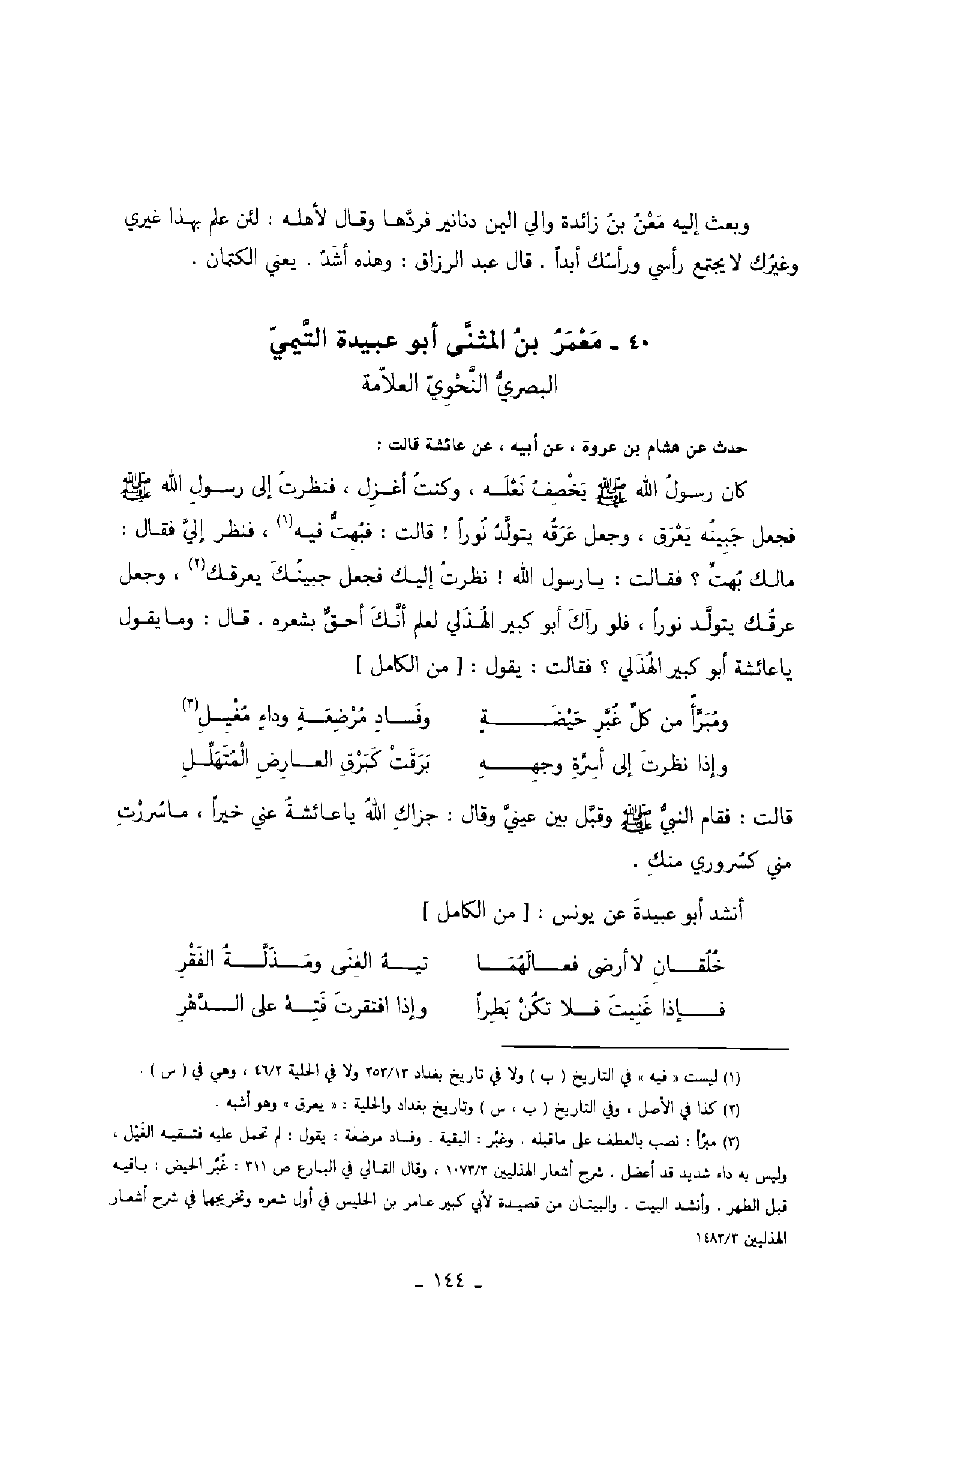 وبعث إليه مَعْنُ بنُ زائدة والي اليمن دنانير فردَّها وقال لأهله : لئن علم بهذا غيري
وغيرُك لا يجتمع رأسي ورأسُك أبداً . قال عبد الرزاق : وهذه أشَدّ . يعني الكتمان .
٤٠ ـ مَعْمَرُ بنُ المثنَّى أبو عبيدة التَّيميّ
البصريُّ النَّحْوِيّ العلاّمة
حدث عن هشام بن عروة ، عن أبيه ، عن عائشة قالت :
كان رسولُ الله ﷺ يَخْصِفُ نَعْلَـه ، وكنتُ أغـزِل ، فنظرتُ إلى رسـولِ الله ﷺ
فجعل جَبينُه يَعْرَق ، وجعل عَرَقُه يتولَّدُ نُوراً ! قالت : فبُهِتُّ فيه(١) ، فنظر إليّ فقـال :
مالـك بُهتِّ ؟ فقـالت : يـارسول الله ! نظرتُ إليـك فجعل جبينُـكَ يعرقـك(٢) ، وجعل
عرقُـك يتولَّـد نوراً ، فلو رآكَ أبو كبير الهُذَلي لعلم أنَّـكَ أحـقُّ بشعره . قـال : ومـايقـول
ياعائشة أبو كبير الهُذَلي ؟ فقالت : يقول : [ من الكامل ]
ومُبَرَّأً من كلِّ غُبَّرِ حَيْضَـةٍ وفَسـادِ مُرْضِعَـةٍ وداءِ مُغْيِـلِ(٣)
وإذا نظرتَ إلى أسِرَّةِ وجهِـهِ بَرَقَتْ كَبَرْقِ العـارِضِ الْمُتَهَلِّـلِ
قالت : فقام النبيُّ ﷺ وقبَّل بين عينيَّ وقال : جزاكِ اللهُ ياعائشةُ عني خيراً ، مـاسُررْتِ
مني كسُروري منكِ .
أنشد أبو عبيدةَ عن يونس : [ من الكامل ]
خُلُقـانِ لاأرضى فعـالَهُمَـا تيـهُ الغِنَى ومَـذَلَّـةُ الفَقْرِ
فـإذا غَنِيتَ فـلا تكُنْ بَطِراً وإذا افتقرتَ فَتِـهْ على الـدَّهْرِ
(١) ليست « فيه » في التاريخ ( ب ) ولا في تاريخ بغداد ٢٥٣/١٣ ولا في الحلية ٤٦/٢ ، وهي في ( س ) .
(٢) كذا في الأصل ، وفي التاريخ ( ب ، س ) وتاريخ بغداد والحلية : « يعرق » وهو أشبه .
(٣) مبرَّأ : نصب بالعطف على ماقبله . وغبّر : البقية . وفساد مرضعة : يقول : لم تحمل عليه فتسقيه الغَيْل ،
وليس به داء شديد قد أعضل . شرح أشعار الهذليين ١٠٧٣/٣ ، وقال القالي في البارع ص ٣١١ : غُبَّرُ الحيض : بـاقيـه
قبل الطهر . وأنشد البيت . والبيتان من قصيدة لأبي كبير عامر بن الحليس في أول شعره وتخريجها في شرح أشعار
الهذليين ١٤٨٣/٣
ـ ١٤٤ ـ